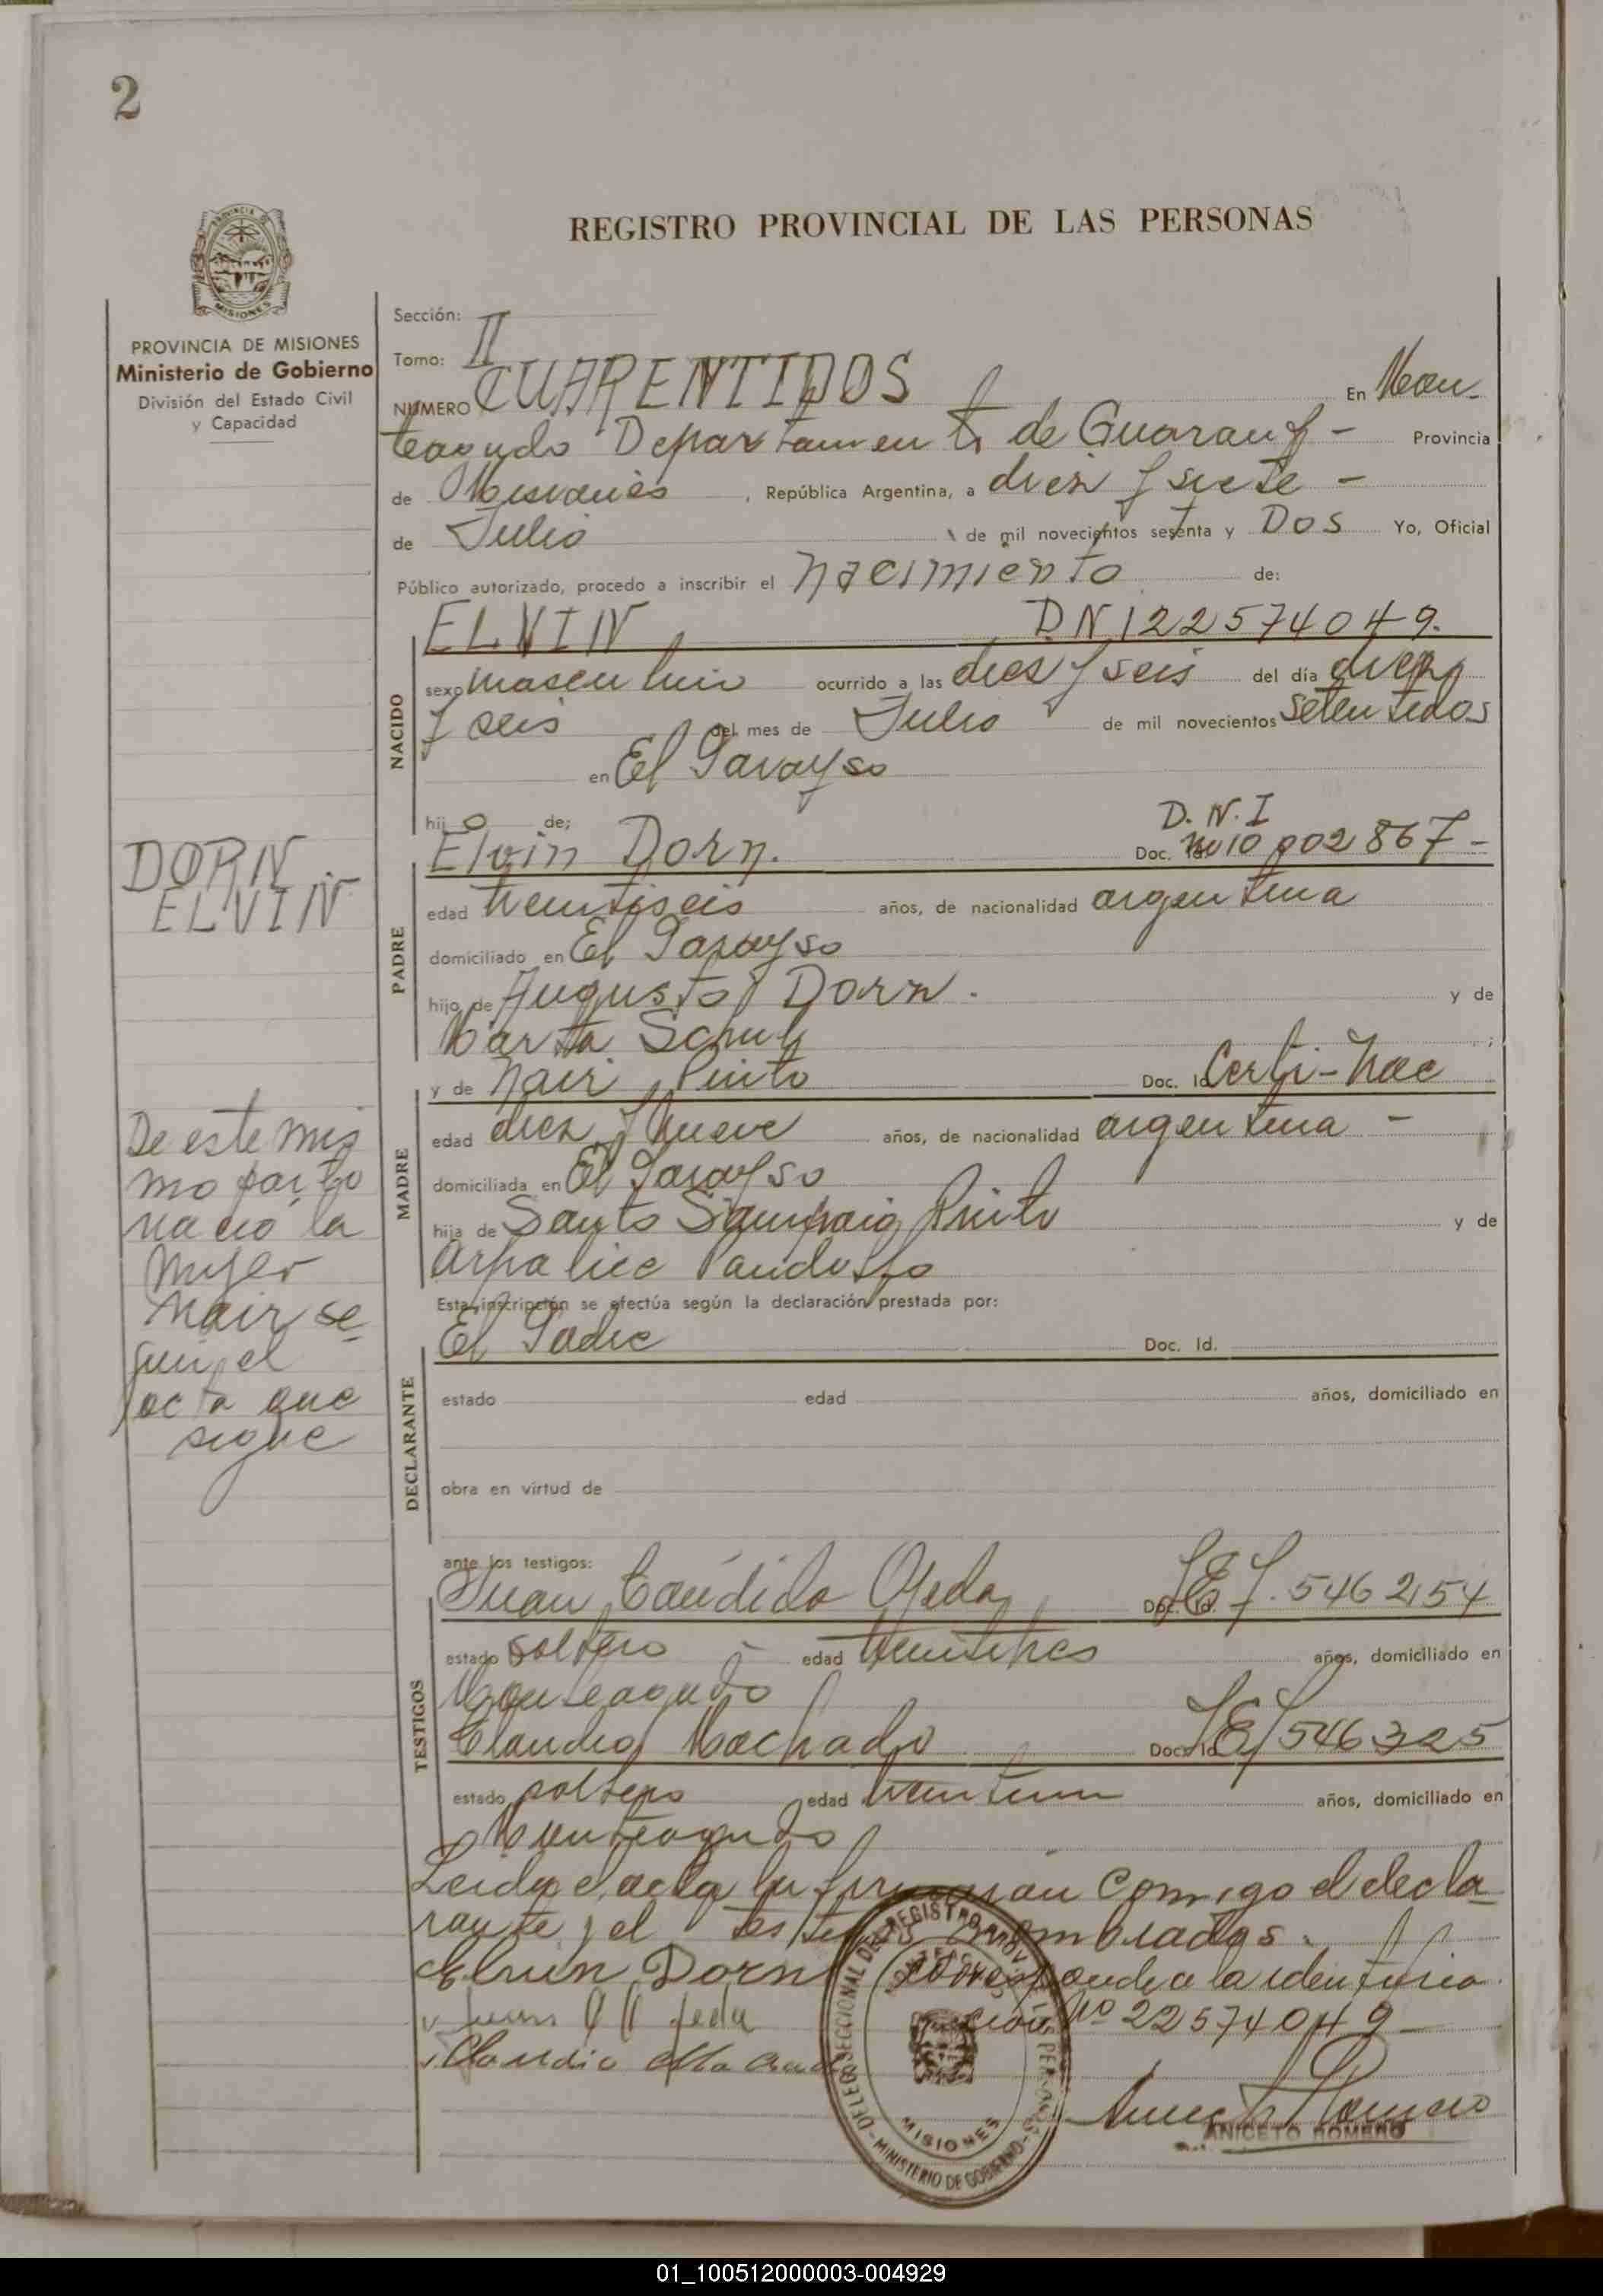 2
REGISTRO PROVINCIAL DE LAS PERSONAS
PROVINCIA DE MISIONES
Ministerio de Gobierno
División del Estado Civil
y Capacidad
Sección:
Tomo: II
NUMERO CUARENTIDOS En Mon-
teagudo Departamento de Guaraní - Provincia
de Misiones, República Argentina, a diez y siete -
de Julio de mil novecientos setenta y DOS Yo, Oficial
Público autorizado, procedo a inscribir el nacimiento de:
NACIDO
ELVIN DNI 22574049.
sexo masculino ocurrido a las diez y seis del día diez
y seis del mes de Julio de mil novecientos setentidos
en El Parayso
hijo de:
PADRE
Elvin Dorn. D.N.I Doc. Id. 10 002 867 -
edad treintiseis años, de nacionalidad argentina
domiciliado en El Parayso
hijo de Augusto Dorn. y de
Marta Schulz;
MADRE
y de Nair Pinto Doc. Id. Certi-Nac
edad diez y nueve años, de nacionalidad argentina -
domiciliada en El Parayso
hija de Santo Pinto y de
Esta inscripción se efectúa según la declaración prestada por:
DECLARANTE
El Padre Doc. Id.
estado edad años, domiciliado en
obra en virtud de
ante los testigos:
TESTIGOS
Juan Cándido Ojeda Doc. Id. 7.546254
estado soltero - edad años, domiciliado en
Monteagudo
Claudio Machado Doc. Id. 7546325
estado soltero edad años, domiciliado en
Monteagudo
Leida el acta la firman comigo el decla-
rante y el testigos nombrados.
Elvin Dorn Corresponde a la identifica
ción No 22574049 -
Juan C Ojeda
Claudio Machado
ANICETO ROMERO
DELEG. SECCIONAL DEL REGISTRO PROV. DE LAS PERSONAS
MISIONES
- MINISTERIO DE GOBIERNO -
DORN
ELVIN.
De este mis
mo parto
nació la
mujer
Nair se-
gun el
acta que
sigue
01_100512000003-004929